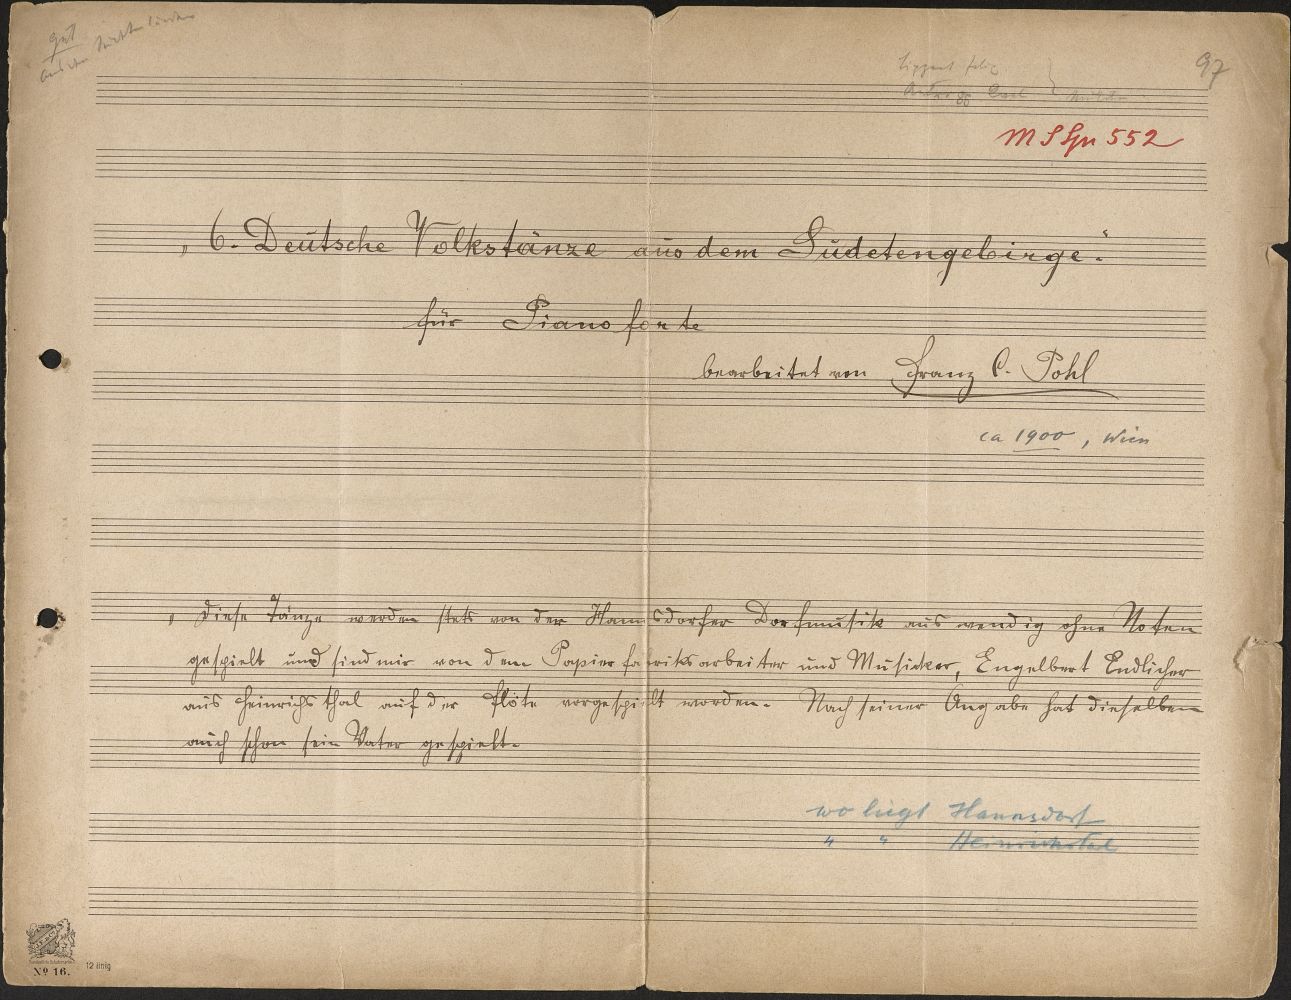 gut
97
MS Gn 552
„6. Deutsche Volkstänze aus dem Sudetengebirge."
für Pianoforte
bearbeitet von Franz P. Pohl
ca 1900, Wien
„Diese Tänze werden stets von der Hannsdorfer Dorfmusik auswendig ohne Noten
gespielt und sind mir von dem Papierfabriksarbeiter und Musiker, Engelbert Endlicher
aus Heinrichsthal auf der Flöte vorgespielt worden. Nach seiner Angabe hat dieselben
auch schon sein Vater gespielt.
wo liegt Hannsdorf
" " Heinrichstal
No 16.
12 linig